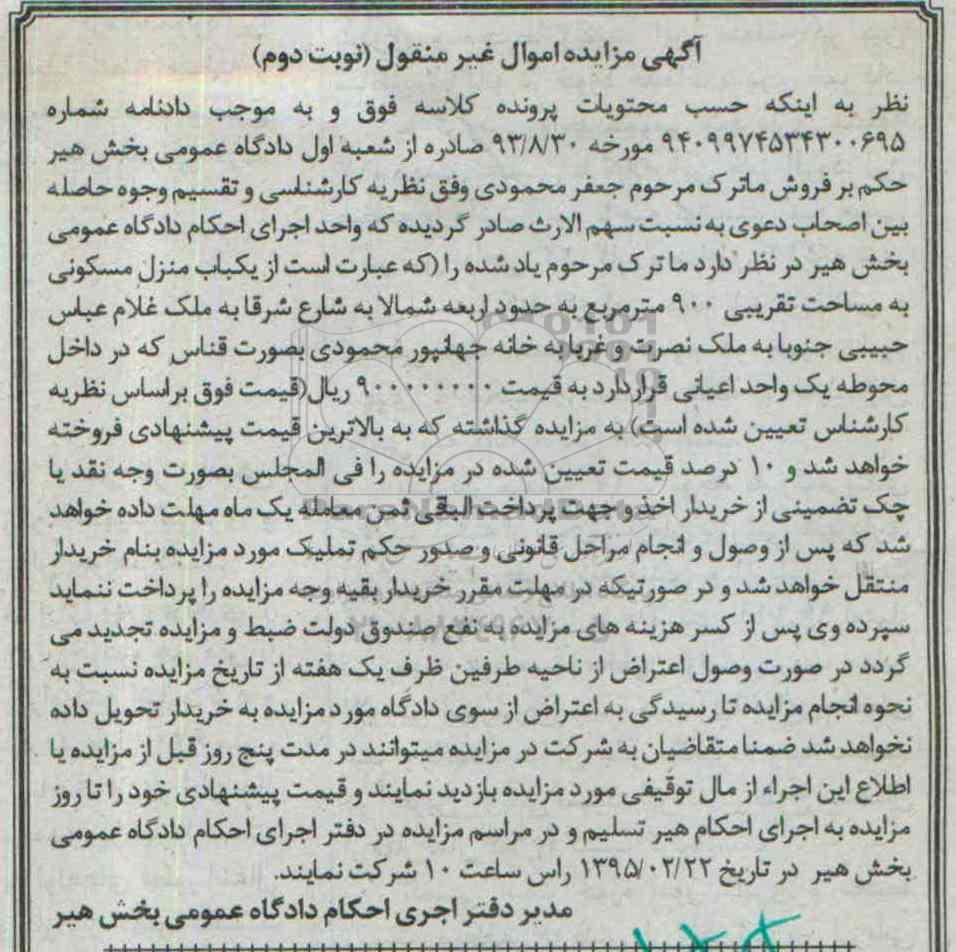 آگهی مزایده اموال غیر منقول (نوبت دوم)
نظر به اینکه حسب محتویات پرونده کلاسه فوق و به موجب دادنامه شماره
۹۴۰۹۹۷۴۵۳۴۳۰۰۶۹۵ مورخه ۹۳/۸/۳۰ صادره از شعبه اول دادگاه عمومی بخش هیر
حکم بر فروش ماترک مرحوم جعفر محمودی وفق نظریه کارشناسی و تقسیم وجوه حاصله
بین اصحاب دعوی به نسبت سهم الارث صادر گردیده که واحد اجرای احکام دادگاه عمومی
بخش هیر در نظر دارد ما ترک مرحوم یاد شده را (که عبارت است از یکباب منزل مسکونی
به مساحت تقریبی ۹۰۰ مترمربع به حدود اربعه شمالا به شارع شرقا به ملک غلام عباس
حبیبی جنوبا به ملک نصرت و غربا به خانه جهانپور محمودی بصورت قناس که در داخل
محوطه یک واحد اعیانی قرار دارد به قیمت ۹۰۰۰۰۰۰۰۰ ریال(قیمت فوق براساس نظریه
کارشناس تعیین شده است) به مزایده گذاشته که به بالاترین قیمت پیشنهادی فروخته
خواهد شد و ۱۰ درصد قیمت تعیین شده در مزایده را فی المجلس بصورت وجه نقد یا
چک تضمینی از خریدار اخذ و جهت پرداخت الباقی ثمن معامله یک ماه مهلت داده خواهد
شد که پس از وصول و انجام مراحل قانونی و صدور حکم تملیک مورد مزایده بنام خریدار
منتقل خواهد شد و در صورتیکه در مهلت مقرر خریدار بقیه وجه مزایده را پرداخت ننماید
سپرده وی پس از کسر هزینه های مزایده به نفع صندوق دولت ضبط و مزایده تجدید می
گردد در صورت وصول اعتراض از ناحیه طرفین ظرف یک هفته از تاریخ مزایده نسبت به
نحوه انجام مزایده تا رسیدگی به اعتراض از سوی دادگاه مورد مزایده به خریدار تحویل داده
نخواهد شد ضمنا متقاضیان به شرکت در مزایده میتوانند در مدت پنج روز قبل از مزایده یا
اطلاع این اجراء از مال توقیفی مورد مزایده بازدید نمایند و قیمت پیشنهادی خود را تا روز
مزایده به اجرای احکام هیر تسلیم و در مراسم مزایده در دفتر اجرای احکام دادگاه عمومی
بخش هیر در تاریخ ۱۳۹۵/۰۲/۲۲ راس ساعت ۱۰ شرکت نمایند.
مدیر دفتر اجری احکام دادگاه عمومی بخش هیر